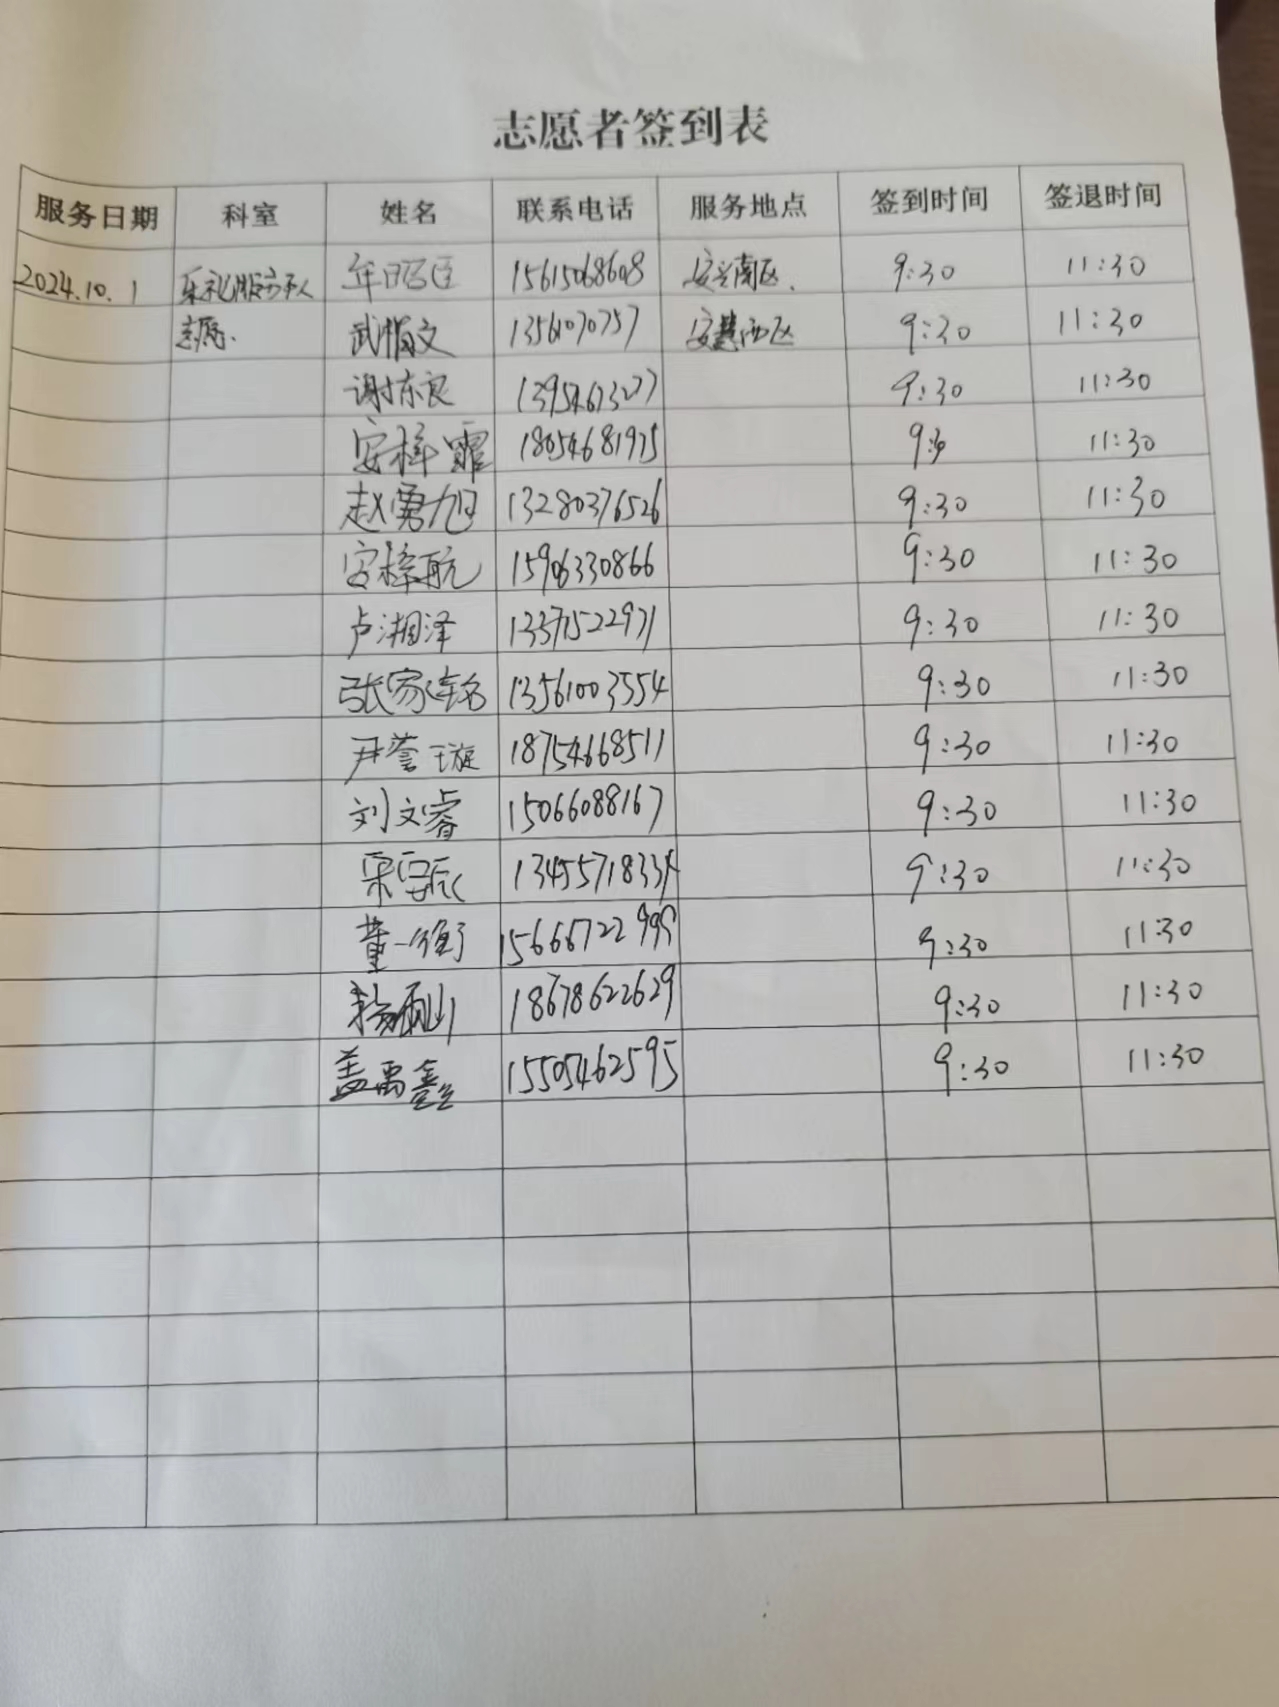 志愿者签到表
服务日期 科室 姓名 联系电话 服务地点 签到时间 签退时间
2024.10.1 年昭臣 15615068608 安兴南区. 9:30 11:30
志愿. 武惟文 13561070757 安慧西区 9:30 11:30
谢东良 13954673277 9:30 11:30
安梓霏 18054681975 11:30
赵勇旭 13280376526 9:30 11:30
安梓航 15906330866 9:30 11:30
卢湘泽 13371522971 9:30 11:30
张家铭 13561003554 9:30 11:30
尹萱璇 18754668511 9:30 11:30
刘文睿 15066088167 9:30 11:30
宋宇辰 13455718334 9:30 11:30
董一衡 15666722999 9:30 11:30
杨雨山 18678622629 9:30 11:30
盖禹鑫 15505462595 9:30 11:30